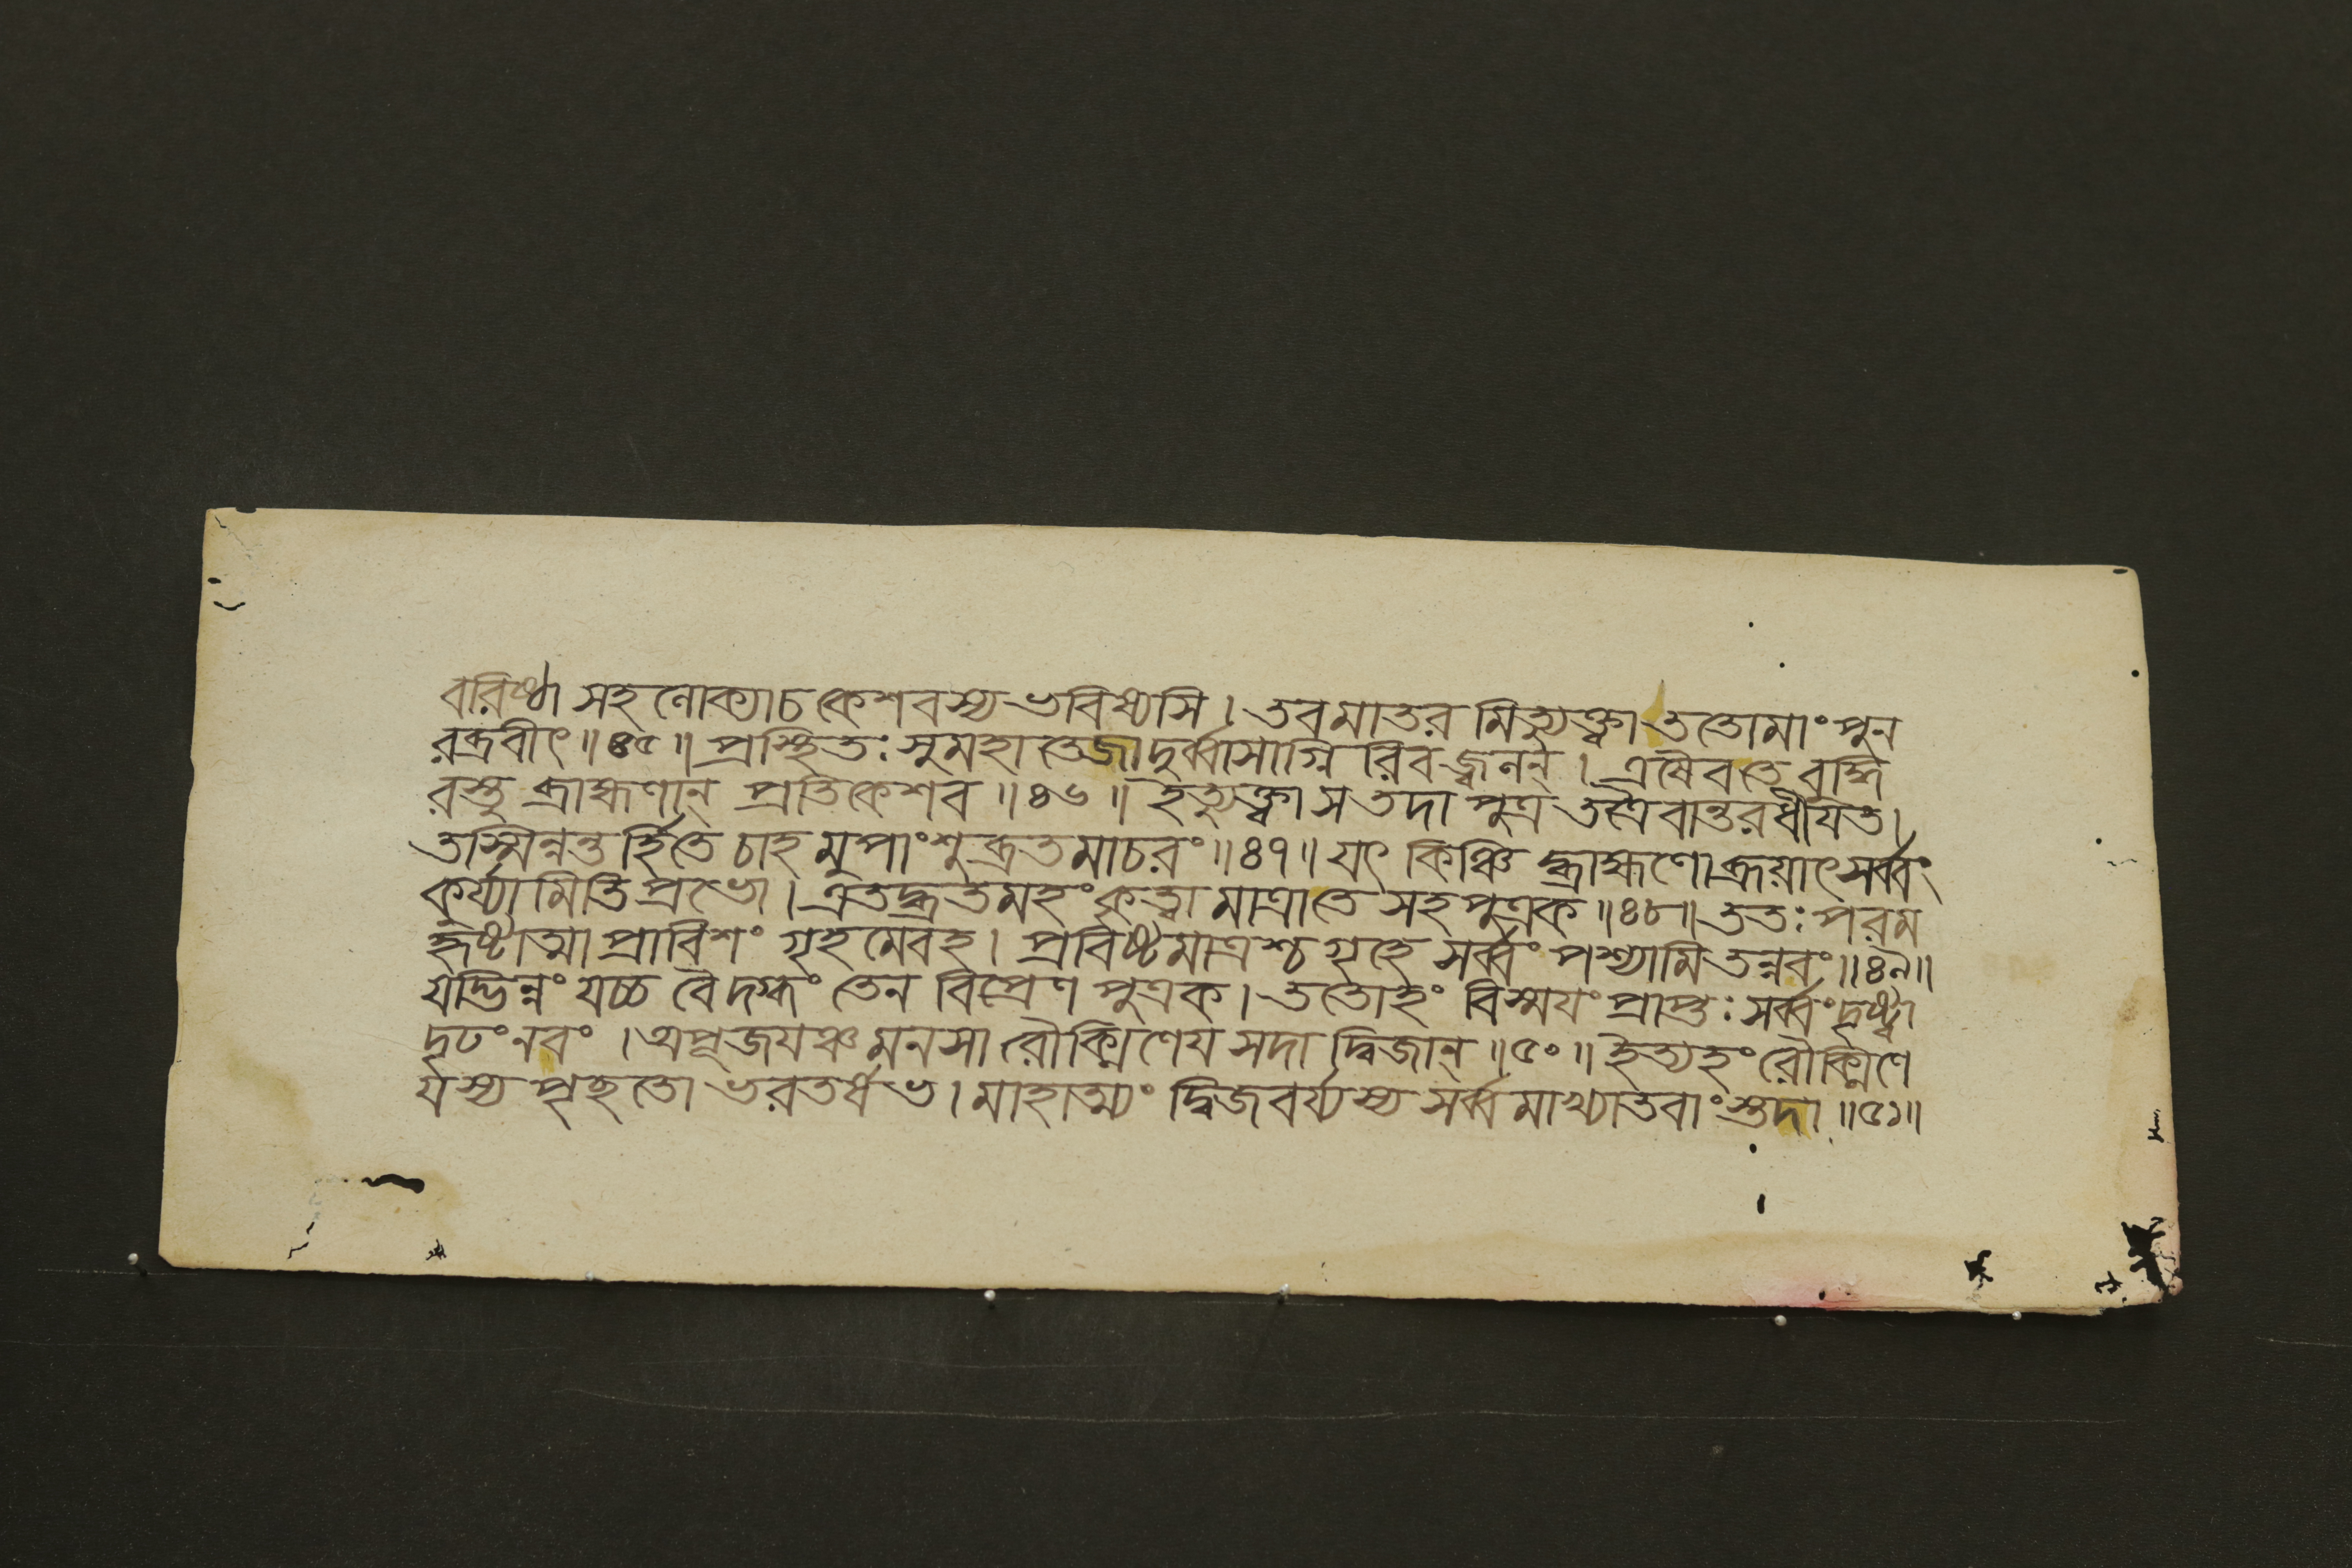 বরিষ্ঠা সহ লোক্যা চ কেশবস্য ভবিষ্যসি । তব মাতর মিত্যুক্ত্বা ততোমাং পুন
রব্রবীৎ ॥ ৪৫ ॥ প্রস্থিতঃ সুমহাতেজা দুর্ব্বাসাগ্নি রিবজ্বলন্ । এষৈবতে বুদ্ধি
রস্তু ব্রাহ্মণান্ প্রতিকেশব ॥ ৪৬ ॥ ইত্যুক্ত্বা স তদা পুত্র তত্রৈবান্তরধীযত ।
তস্মিন্নন্তর্হিতে চাহ মুপাংশু ব্রতমাচরং ॥ ৪৭ ॥ যৎ কিঞ্চি দ্ব্রাহ্মণো ব্রূয়াৎ সর্ব্বং
কুর্য্যামিতি প্রভো । এতদ্ব্রতমহং কৃত্বা মাত্রাতে সহ পুত্রক ॥ ৪৮ ॥ ততঃ পরম
হৃষ্টাত্মা প্রাবিশং গৃহমেবহ । প্রবিষ্টমাত্রশ্চ গৃহে সর্ব্বং পশ্যামি তন্নবং ॥ ৪৯ ॥
যদ্ভিন্নং যচ্চ বৈ দগ্ধং তেন বিপ্রেণ পুত্রক । ততোহং বিস্ময়ং প্রাপ্তঃ সর্ব্বং দৃষ্ট্বা
দৃঢং নবং । অপূজযঞ্চ মনসা রৌক্মিণেয সদা দ্বিজান্ ॥ ৫০ ॥ ইত্যহং রৌক্মিণে
যস্য পৃচ্ছতো ভরতর্ষভ । মাহাত্ম্যং দ্বিজবর্য্যস্য সর্ব্বমাখ্যাতবাং স্তদা ॥ ৫১ ॥